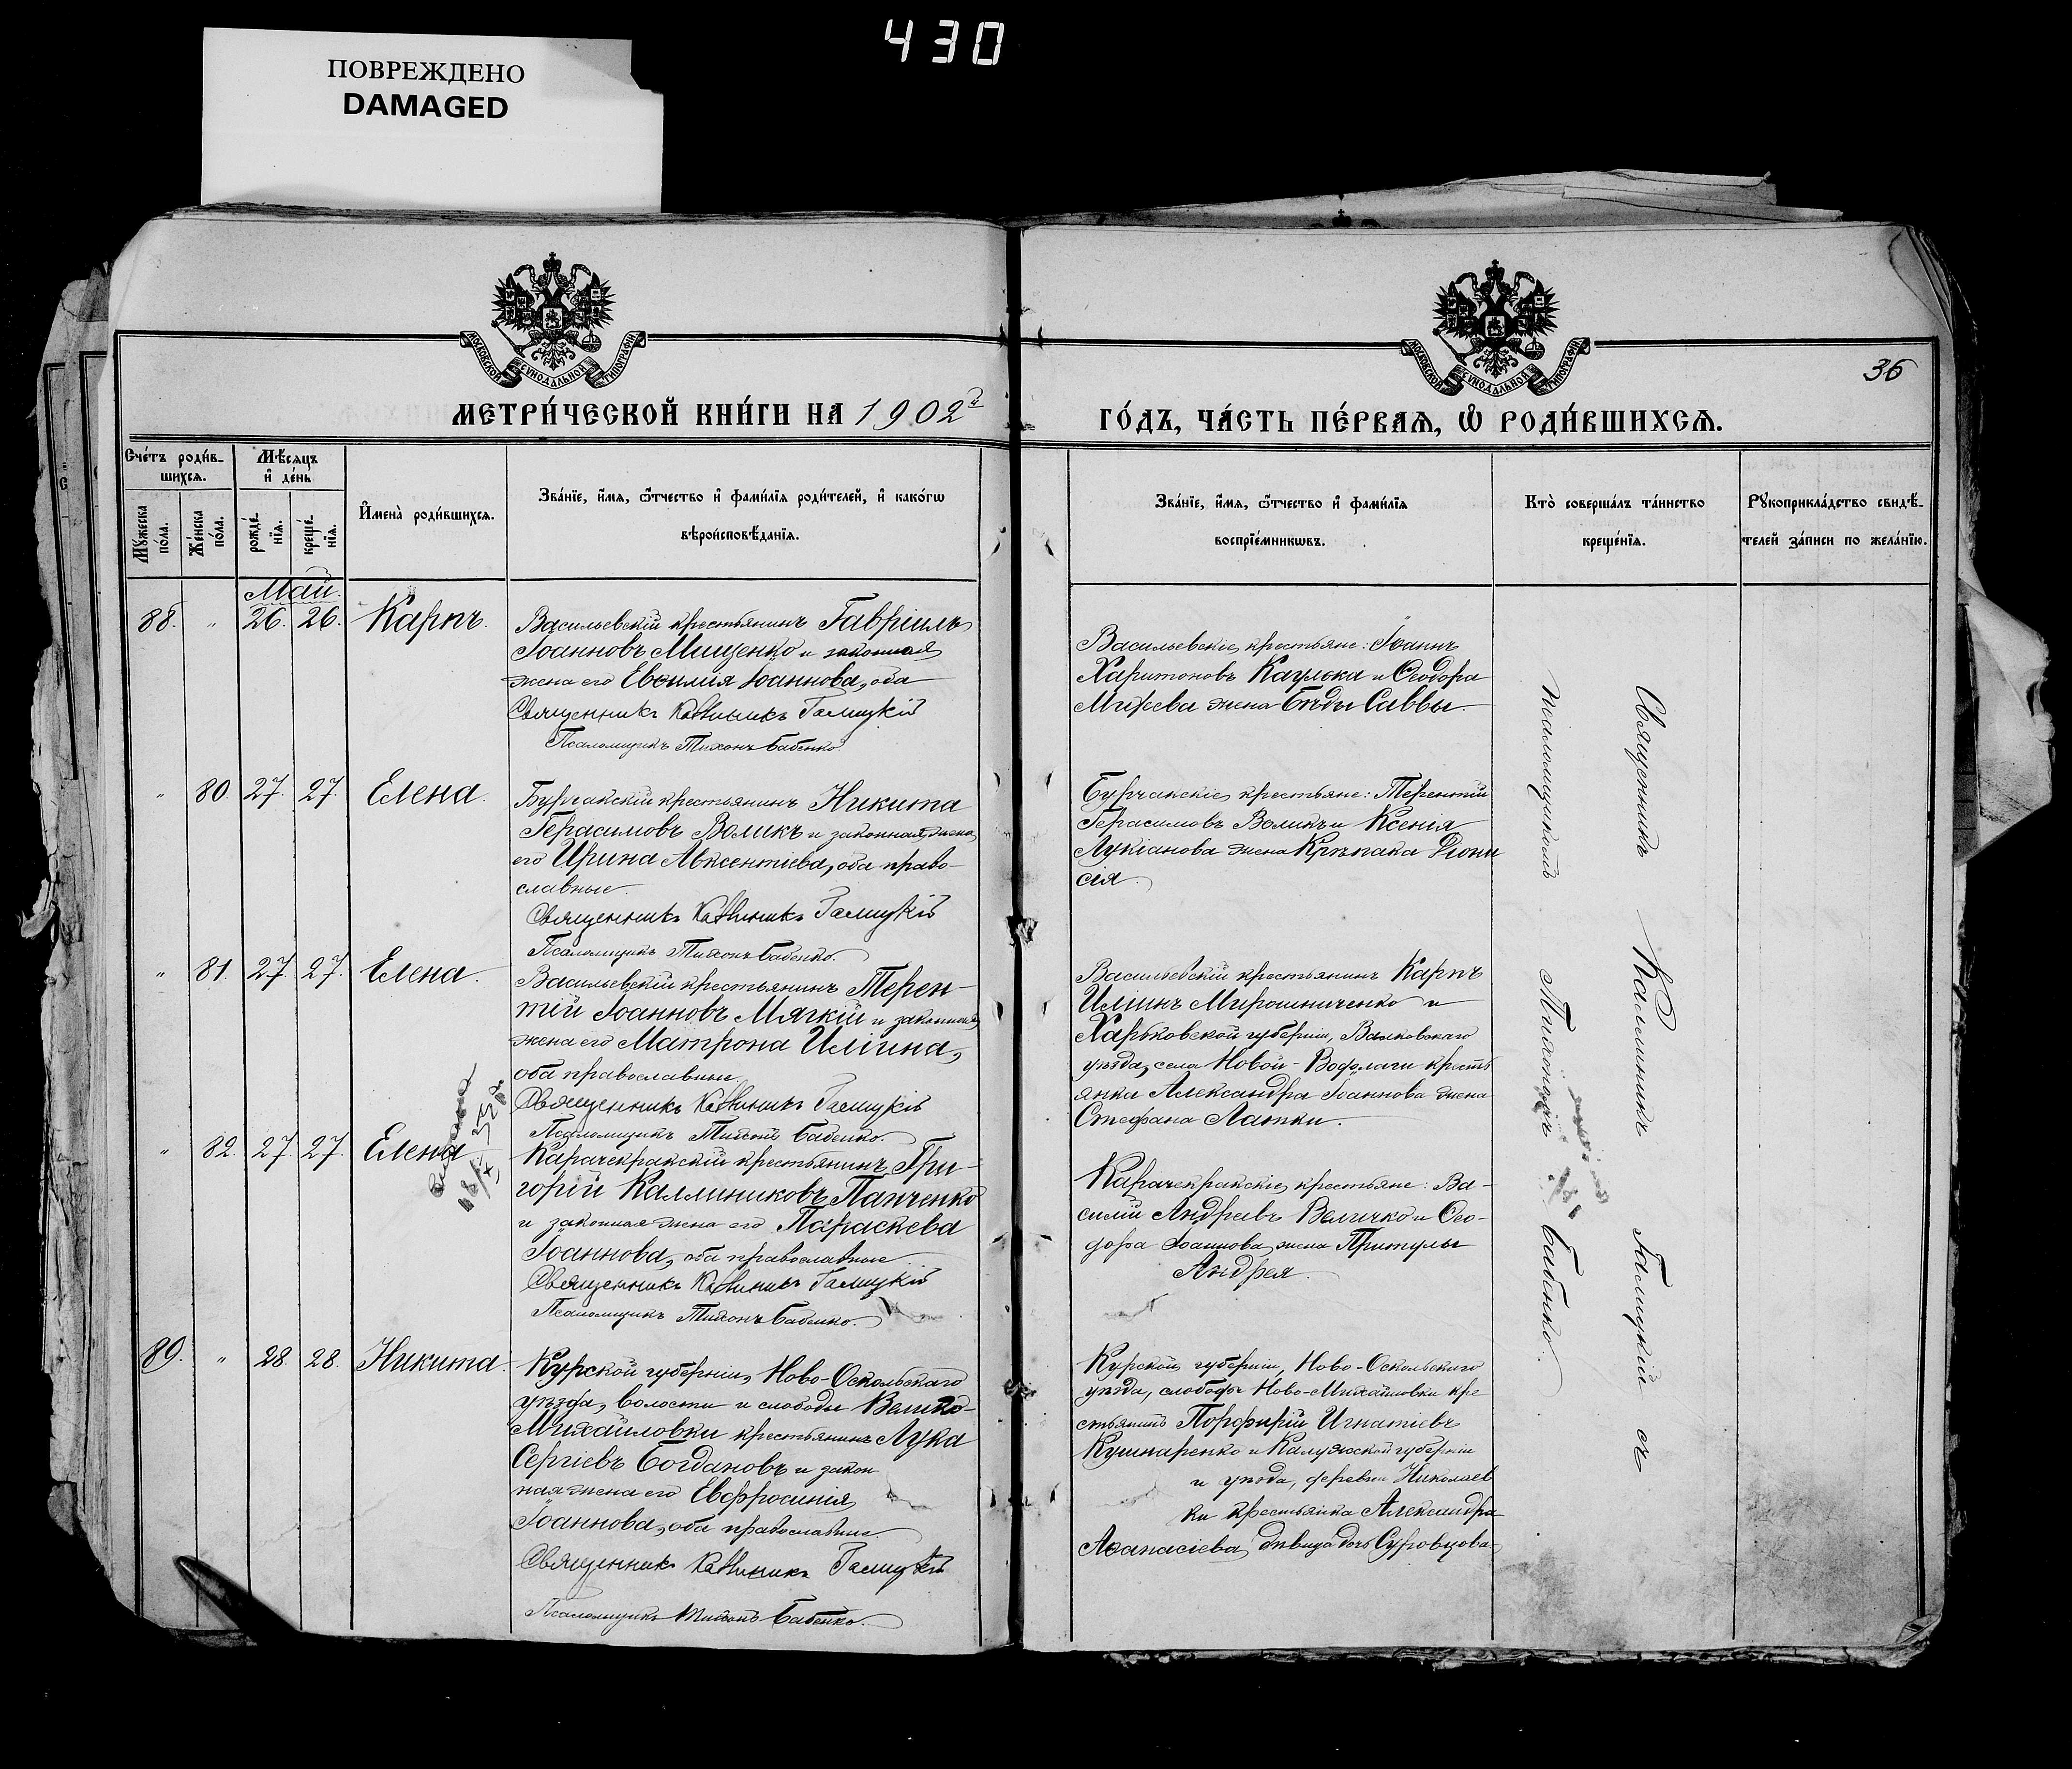 430
ПОВРЕЖДЕНО
DAMAGED
МОСКОВСКОЙ СѴНОДАЛЬНОЙ ТИПОГРАФІИ
МОСКОВСКОЙ СѴНОДАЛЬНОЙ ТИПОГРАФІИ
36
МЕТРИ́ЧЕСКОЙ КНИ́ГИ НА 1902й
ГО́ДЪ, ЧА́СТЬ ПЕ́РВАѦ, Ѽ РОДИ́ВШИХСѦ.
Сче́тъ роди́в-
шихсѧ.
Мѣ́сѧцъ
и҆ де́нь
Мꙋ́жеска
по́ла.
Же́нска
по́ла.
рожде́-
нїѧ.
креще́-
нїѧ.
И҆мена̀ роди́вшихсѧ.
Зва́нїе, и҆́мѧ, ѻ҆́тчество и҆ фами́лїѧ роди́телей, и҆ како́гѡ
вѣроисповѣ́данїѧ.
Зва́нїе, и҆́мѧ, ѻ҆́тчество и҆ фами́лїѧ
воспрїе́мникѡвъ.
Кто̀ соверша́лъ та́инство
креще́нїѧ.
Рꙋкоприкла́дство свидѣ́-
телей за́писи по жела́нїю.
Май.
88. " 26. 26. Карпъ.
Васильевскій крестьянинъ Гавріилъ
Іоанновъ Мищенко и законная
жена его Евѳимія Іоаннова, оба
Священникъ Каллиникъ Галицкій
Псаломщикъ Тихонъ Бабенко
Васильевскіе крестьяне: Іоаннъ
Харитоновъ Каулька и Ѳеодора
Михеева жена Бѣды Саввы.
" 80. 27. 27. Елена.
Бурчакскій крестьянинъ Никита
Герасимовъ Воликъ и законная жена
его Ирина Авксентіева, оба право-
славные.
Священникъ Каллиникъ Галицкій
Псаломщикъ Тихонъ Бабенко.
Бурчакскіе крестьяне: Терентій
Герасимовъ Воликъ и Ксенія
Лукіанова жена Крѣпака Діони
сія.
" 81. 27. 27. Елена.
Васильевскій крестьянинъ Терен-
тій Іоанновъ Мягкій и законная
жена его Матрона Иліина,
оба православные.
Священникъ Каллиникъ Галицкій
Псаломщикъ Тихонъ Бабенко.
Васильевскій крестьянинъ Карпъ
Иліинъ Мирошниченко и
Харьковской губерніи, Валковскаго
уѣзда, села Новой-Водолаги кресть
янка Александра Іоаннова жена
Стефана Латки.
" 82. 27. 27. Елена
Карачекракскій крестьянинъ Гри-
горій Каллиниковъ Панченко
и законная жена его Параскева
Іоаннова, оба православные
Священникъ Каллиникъ Галицкій
Псаломщикъ Тихонъ Бабенко.
Карачекракскіе крестьяне: Ва-
силій Андреевъ Величко и Ѳео-
дора Іоаннова жена Притулы
Андрея.
89. " 28. 28. Никита.
Курской губерніи, Ново-Оскольскаго
уѣзда, волости и слободы Велико-
Михайловки крестьянинъ Лука
Сергіевъ Богдановъ и закон
ная жена его Евфросинія
Іоаннова, оба православные.
Священникъ Каллиникъ Галицкій
Псаломщикъ Тихонъ Бабенко.
Курской губерніи, Ново-Оскольскаго
уѣзда, слободы Ново-Михайловки кре
стьянинъ Порфирій Игнатіевъ
Кушнаренко и Калужской губерніи
и уѣзда, деревни Николаев
ки крестьянка Александра
Аѳанасіева, дѣвица дочь Суровцова
Священникъ Каллиникъ Галицкій съ
псаломщикомъ Тихономъ Бабенко.